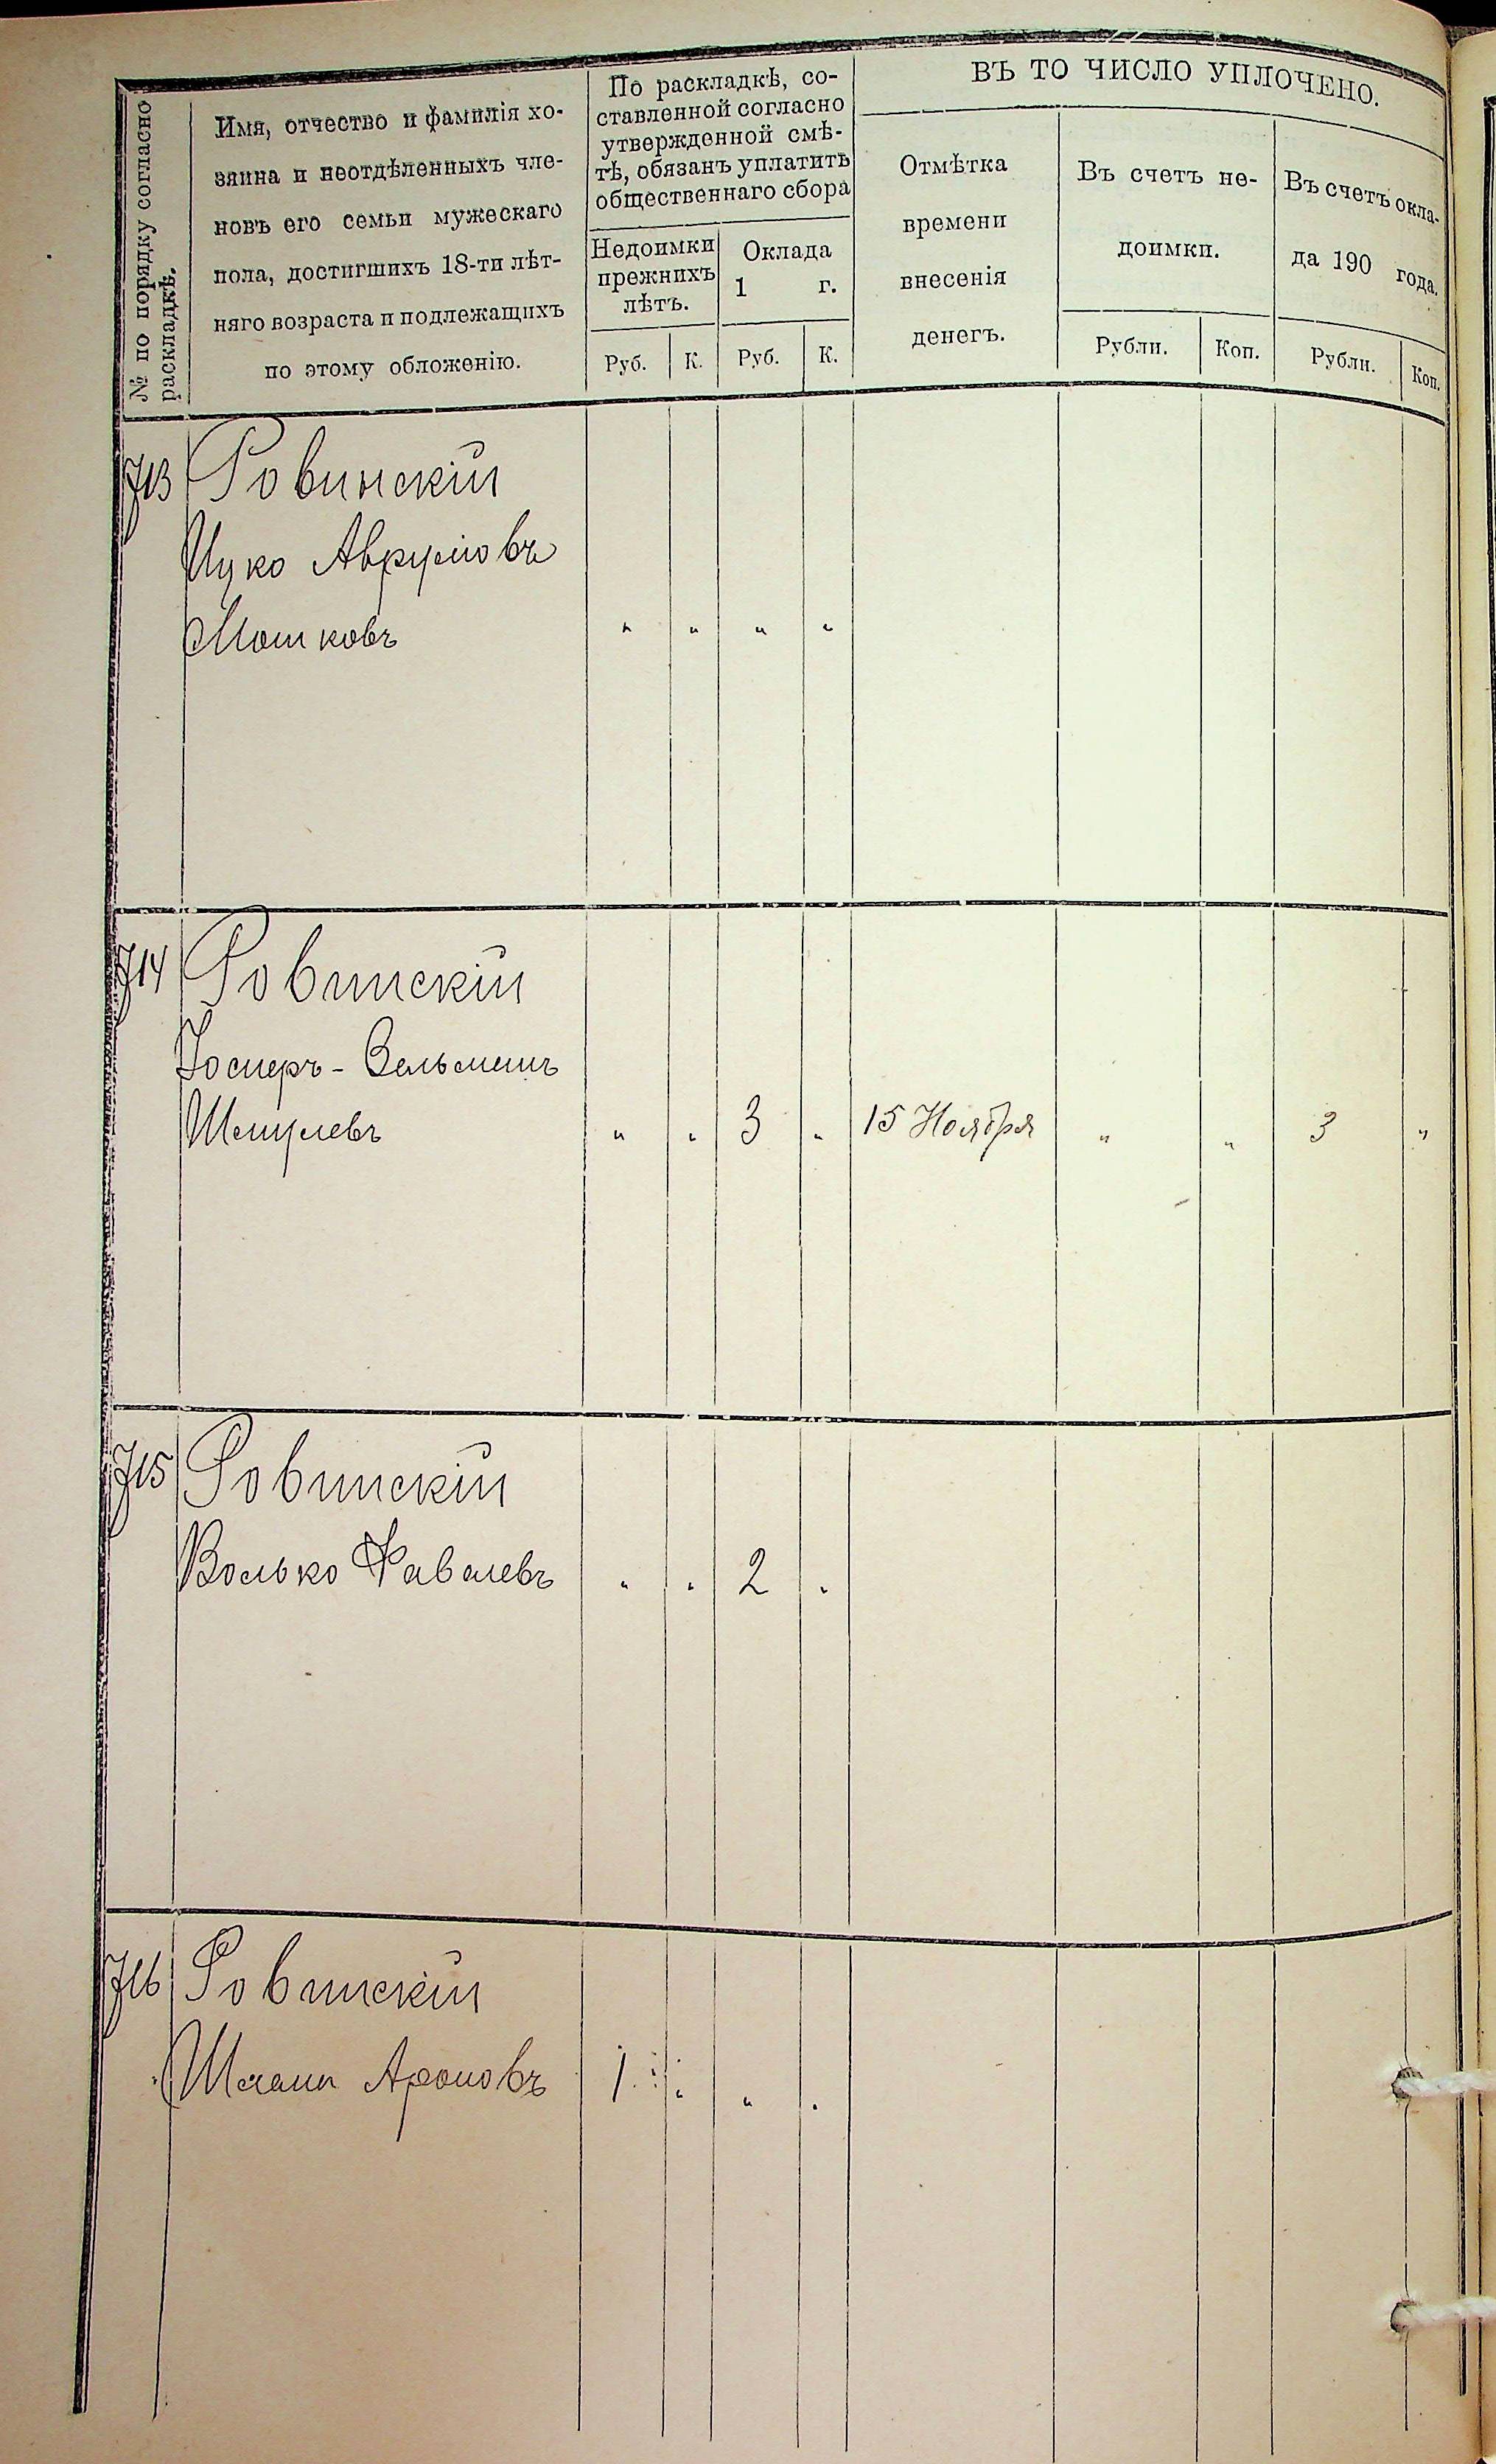 № по порядку согласно
раскладкѣ.
Имя, отчество и фамилія хо-
зяина и неотдѣленныхъ чле-
новъ его семьи мужескаго
пола, достигшихъ 18-ти лѣт-
няго возраста и подлежащихъ
по этому обложенію.
По раскладкѣ, со-
ставленной согласно
утвержденной смѣ-
тѣ, обязанъ уплатить
общественнаго сбора
Недоимки
прежнихъ
лѣтъ.
Оклада
1 г.
Руб. К. Руб. К.
ВЪ ТО ЧИСЛО УПЛОЧЕНО.
Отмѣтка
времени
внесенія
денегъ.
Въ счетъ не-
доимки.
Рубли. Коп.
Въ счетъ окла-
да 190 года.
Рубли. Коп.
713 Ровинскій
Ицко Аврумовъ
Мошковъ " " " "
714 Ровинскій
Зельменъ
Шмулевъ " " 3 " 15 Ноября " " 3 "
715 Ровинскій
Волько " " 2 "
716 Ровинскій
Ароновъ 1 " " "